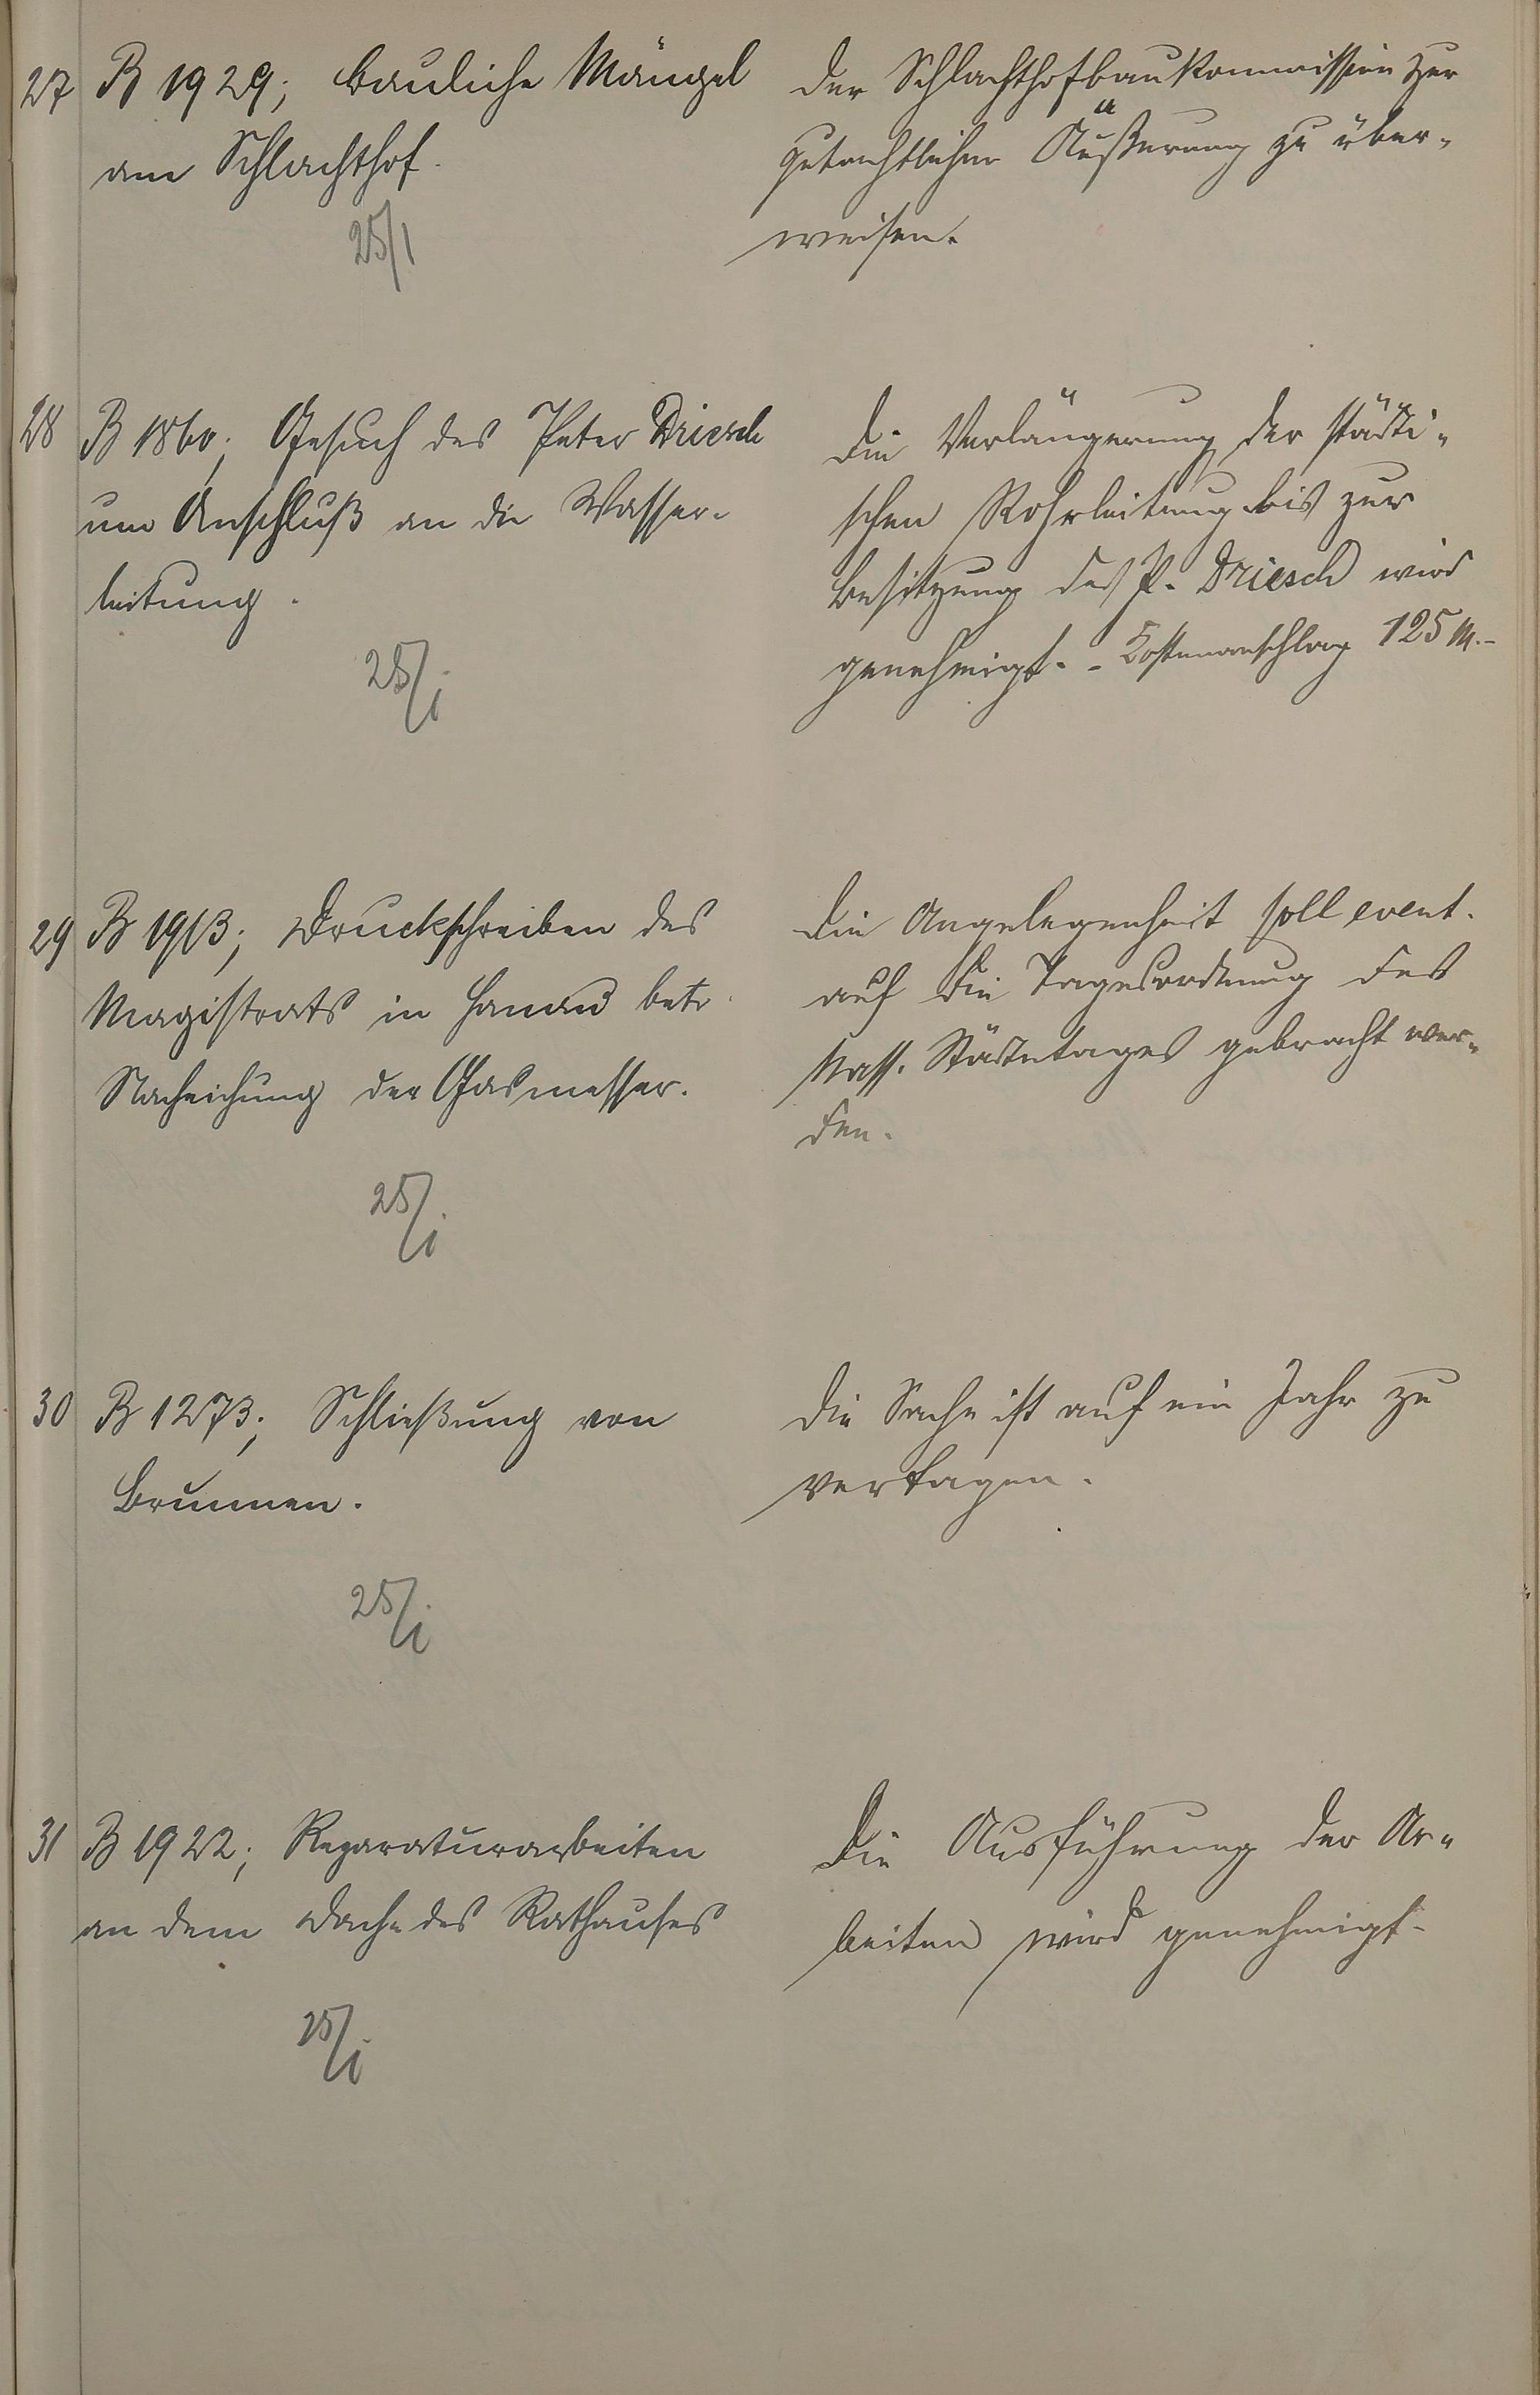 27 B 1929; bauliche Mängel
am Schlachthof.
25/1
Der Schlachthofbaukommission zur
gutachtlichen Äußerung zu über-
weisen.
28 B 1860; Gesuch des Peter Driesch
um Anschluß an die Wasser-
leitung.
25/1
Die Verlängerung der städti-
schen Rohrleitung bis zur
Besitzung des P. Driesch wird
genehmigt. - Kostenanschlag 125 M.-
29 B 1913; Druckschreiben des
Magistrats in Hanau betr.
Nacheichung der Gasmesser.
25/1
Die Angelegenheit soll event.
auf die Tagesordnung des
Nass. Städtetages gebracht wer-
den.
30 B 1273; Schließung von
Brunnen.
25/1
Die Sache ist auf ein Jahr zu
vertagen.
31 B 1922; Reparaturarbeiten
an dem Dache des Rathauses
25/1
Die Ausführung der Ar-
beiten wird genehmigt.